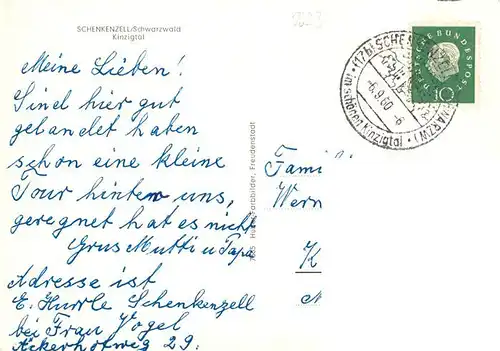 SCHENKENZELL/Schwarzwald
Kinzigtal
Meine Lieben!
Sind hier gut
gelandet haben
schon eine kleine
Tour hinter uns,
geregnet hat es nicht
Gruss Mutti u Papa
Adresse ist
E. Hurrle Schenkenzell
bei Frau Vogel
Ackerhofweg 29.
Freudenstadt
Fami
Wern
K
im schönen Kinzigtal
-6.9.60-8
DEUTSCHE BUNDESPOST
10